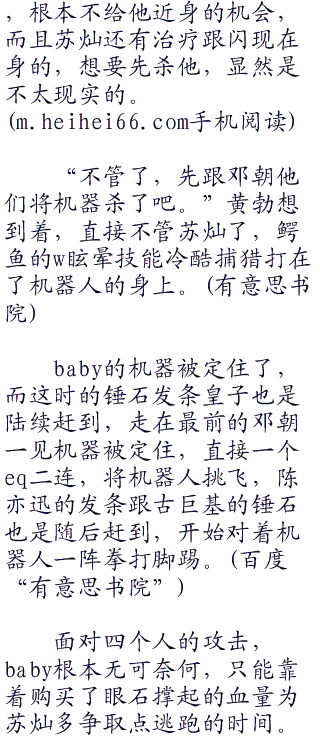 ，根本不给他近身的机会，
而且苏灿还有治疗跟闪现在
身的，想要先杀他，显然是
不太现实的。
(m.heihei66.com手机阅读)
“不管了，先跟邓朝他
们将机器杀了吧。”黄勃想
到着，直接不管苏灿了，鳄
鱼的w眩晕技能冷酷捕猎打在
了机器人的身上。(有意思书
院)
baby的机器被定住了，
而这时的锤石发条皇子也是
陆续赶到，走在最前的邓朝
一见机器被定住，直接一个
eq二连，将机器人挑飞，陈
亦迅的发条跟古巨基的锤石
也是随后赶到，开始对着机
器人一阵拳打脚踢。(百度
“有意思书院”)
面对四个人的攻击，
baby根本无可奈何，只能靠
着购买了眼石撑起的血量为
苏灿多争取点逃跑的时间。